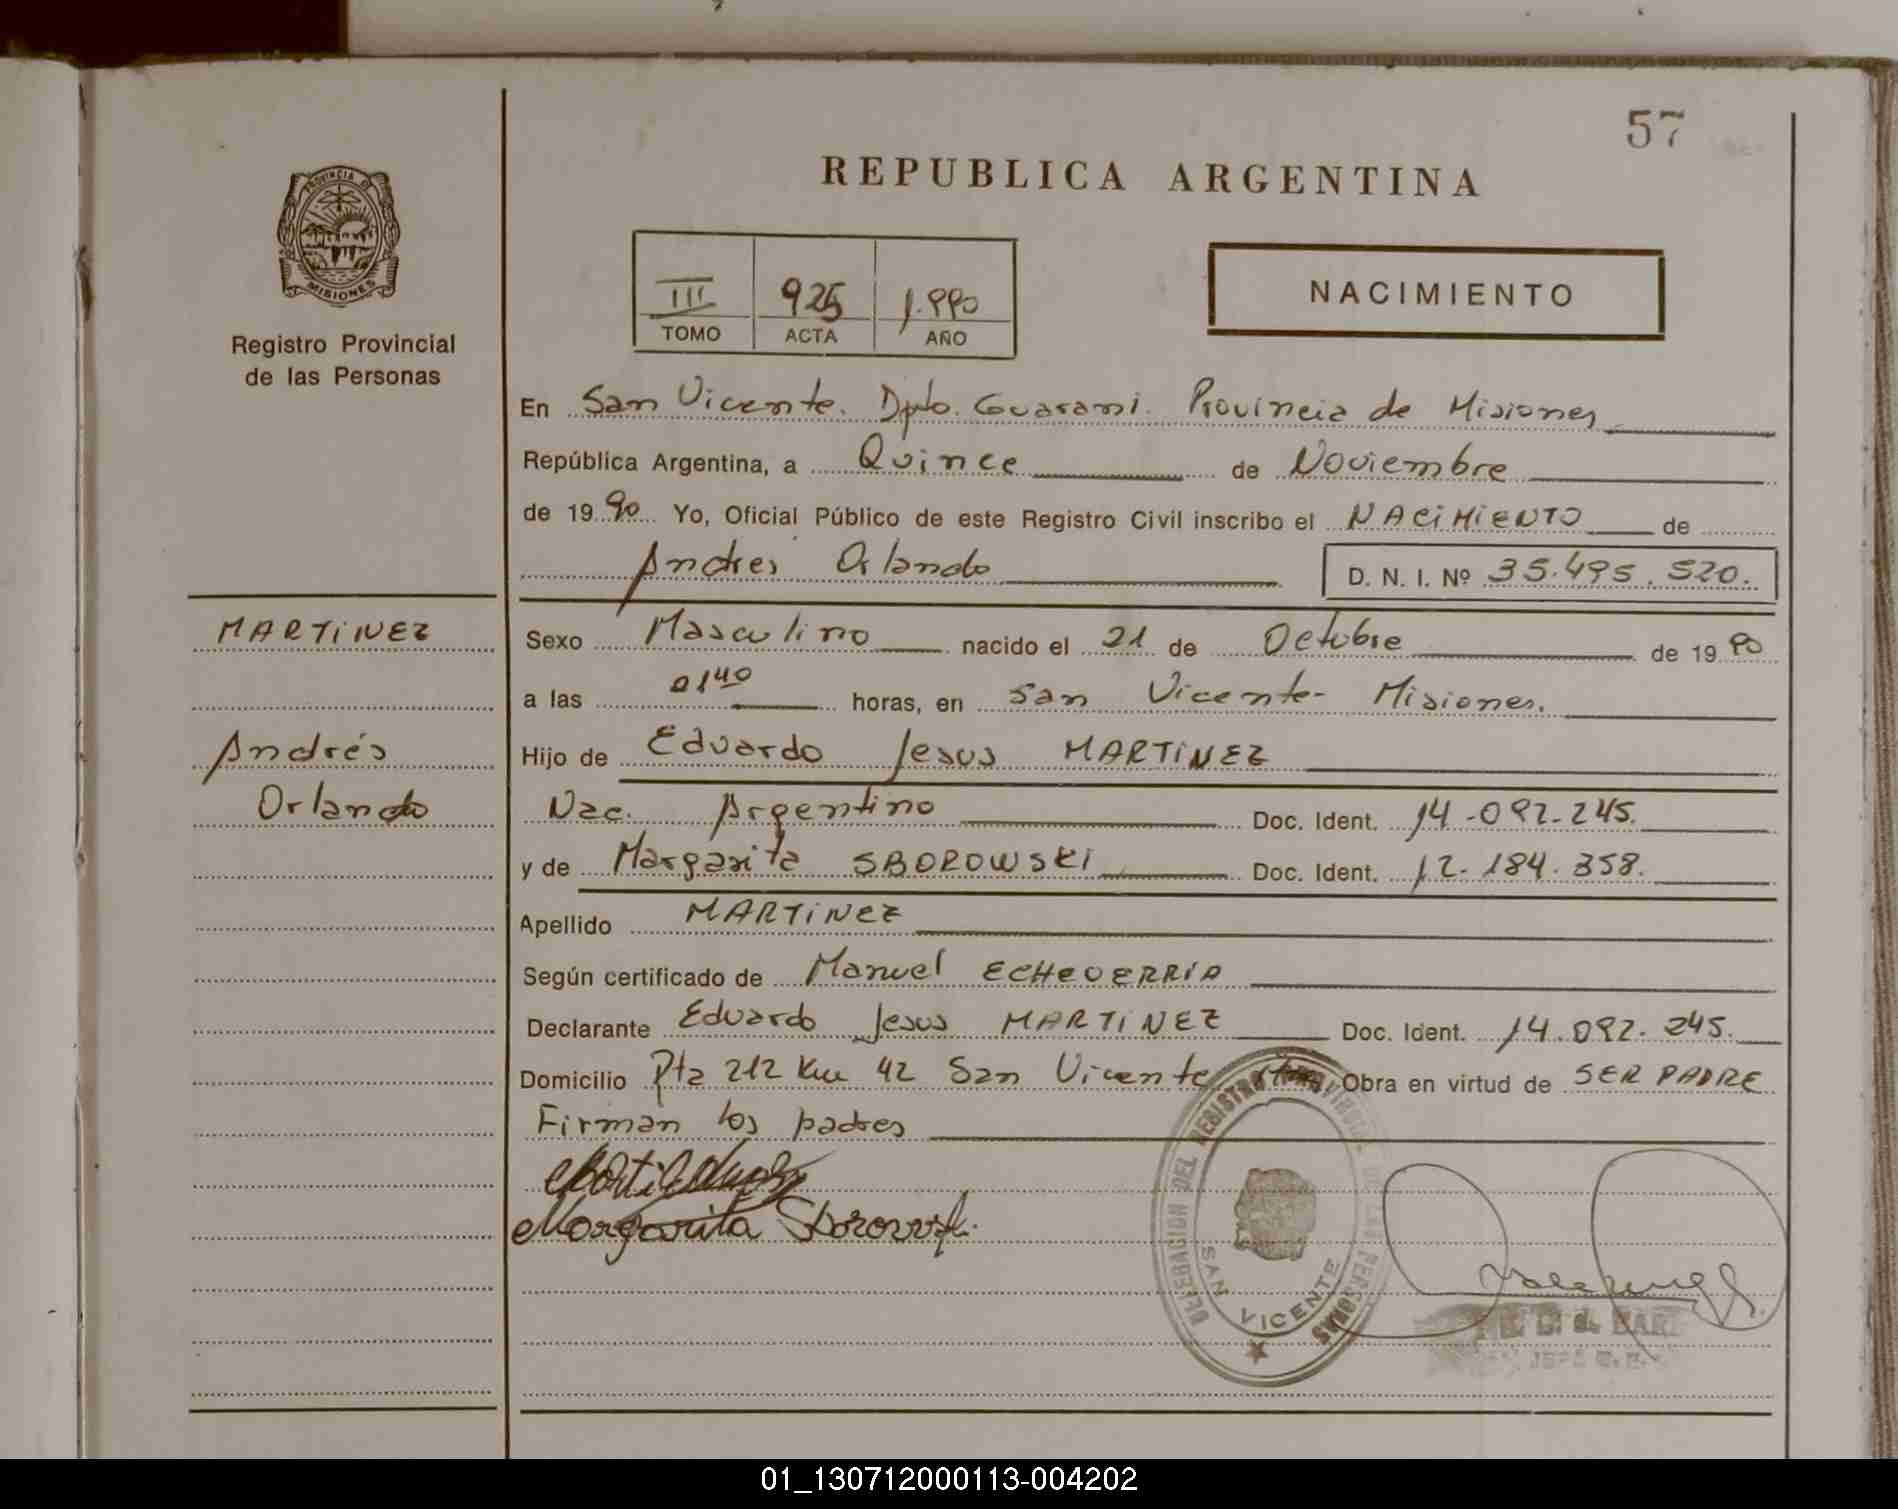 57
REPUBLICA ARGENTINA
PROVINCIA DE
MISIONES
Registro Provincial
de las Personas
III 925 1.990
TOMO ACTA AÑO
NACIMIENTO
En San Vicente. Dpto. Guarani. Provincia de Misiones
República Argentina, a Quince de Noviembre
de 1990 Yo, Oficial Público de este Registro Civil inscribo el NACIMIENTO de
Andres Orlando D. N. I. Nº 35.495.520.
MARTINEZ
Sexo Masculino nacido el 21 de Octubre de 1990
a las 0140 horas, en San Vicente- Misiones.
Andrés
Orlando
Hijo de Eduardo Jesus MARTINEZ
Nac. Argentino Doc. Ident. 14-092-245.
y de Margarita SBOROWSKI Doc. Ident. 12.184.358.
Apellido MARTINEZ
Según certificado de Manuel ECHEVERRIA
Declarante Eduardo Jesus MARTINEZ Doc. Ident. 14.092.245.
Domicilio Pta 212 Km 42 San Vicente Obra en virtud de SER PADRE
Firman los padres
Margarita Sborowski
DELEGACION DEL REGISTRO PROVINCIAL DE LAS PERSONAS
SAN VICENTE
01_130712000113-004202